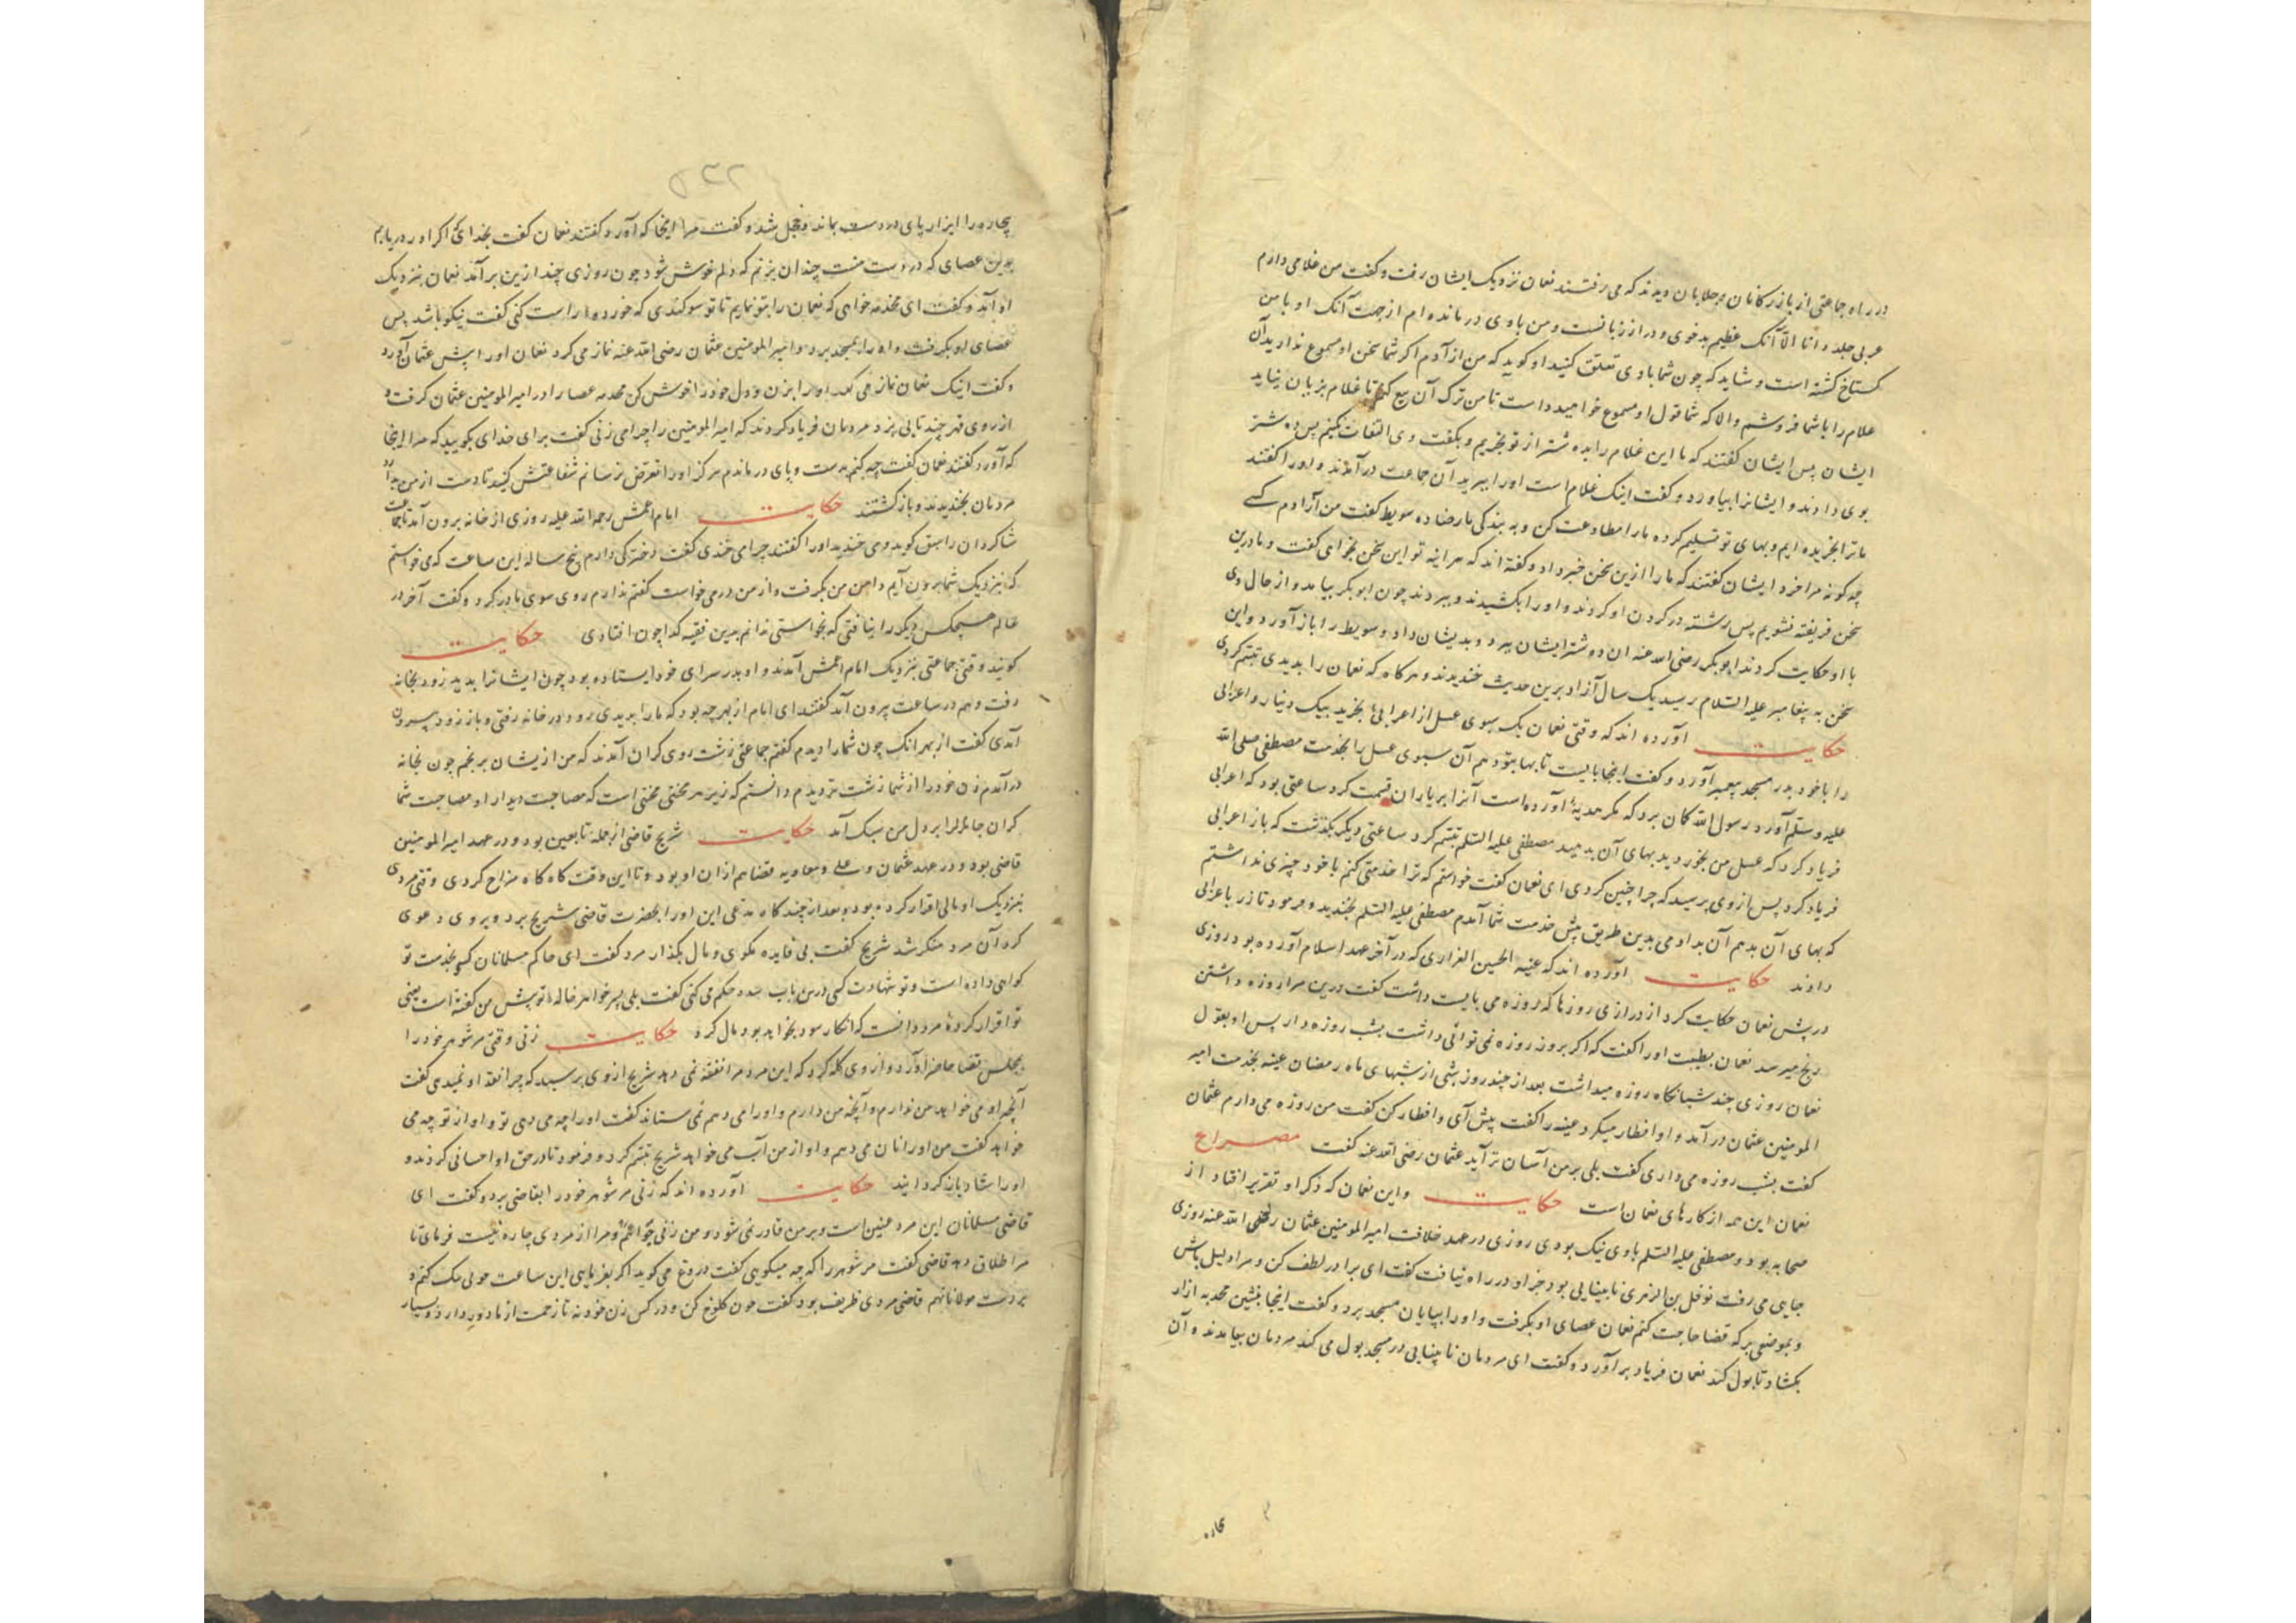 در راه جماعتی از بازرکانان و جلابان دیدند که می رفتند نعمان نزدیک ایشان رفت و کفت من غلامی دارم
عربی جلد و دانا الا آنک عظیم بدخوی و دراز زبانست و من با وی درمانده ام از جهت آنک او با من
کستاخ کشته است و شاید که چون شما با وی تعلق کنید او کوید که من آزادم اکر شما سخن او مسموع ندارید آن
غلام را با شما فروشم والا که شما قول او مسموع خواهید داشت تا من ترک آن بیع کنم تا غلام بزیان نیاید
ایشان پس ایشان کفتند که ما این غلام را بده شتر از تو بخریم و بکفت وی التفات نکنیم پس ده شتر
بوی دادند و ایشانرا بیاورد و کفت اینک غلام است او را ببرید آن جماعت درآمدند و او را کفتند
ما ترا بخریده ایم و بهای تو تسلیم کرده ما را مطاوعت کن و به بندکی ما رضا ده سویط کفت من آزادم کسی
چه کونه مرا خرد ایشان کفتند که ما را ازین سخن خبر داد و کفته اند که هر اینه تو این سخن بخواهی کفت و ما درین
سخن فریفته نشویم پس رشته در کردن او کردند و او را بکشیدند و ببردند چون ابوبکر بیامد و از حال وی
با او حکایت کردند ابوبکر رضی الله عنه ان ده شتر ایشان ببرد و بدیشان داد و سویط را باز آورد و این
سخن به پیغامبر علیه السلام رسید یک سال آزاد برین حدیث خندیدند و هرکاه که نعمان را بدیدی تبسم کردی
حکایت آورده اند که وقتی نعمان یک سبوی عسل از اعرابی بخرید بیک دینار و اعرابی
را با خود بدر مسجد پیغمبر آورد و کفت اینجا بایست تا بها بتو دهم آن سبوی عسل را بخدمت مصطفی صلی الله
علیه وسلم آورد رسول الله کمان برد که مکر هدیه آورده است آنرا بر یاران قسمت کرد ساعتی بود که اعرابی
فریاد کرد که عسل من بخوردید بهای آن بدهید مصطفی علیه السلم تبسم کرد ساعتی دیکر بکذشت که باز اعرابی
فریاد کرد پس از وی پرسید که چرا چنین کردی ای نعمان کفت خواستم که ترا خدمتی کنم با خود چیزی نداشتم
که بهای آن بدهم آن بدادمی بدین طریق پیش خدمت شما آمدم مصطفی علیه السلم بخندید و فرمود تا زر باعرابی
دادند حکایت آورده اند که عنیه الحصین الفزاری که در آخر عهد اسلام آورده بود روزی
در پیش نعمان حکایت کرد از درازی روزها که روزه می بایست داشت کفت درین مرا روزه داشتن
رنج میرسد نعمان بطیبت او را کفت که اکر بروز روزه نمی توانی داشت بشب روزه دار پس او بقول
نعمان روزی چند شبانکاه روزه میداشت بعد از چند روز شبی از شبهای ماه رمضان عینه بخدمت امیر
المومنین عثمان درآمد و او افطار میکرد عینه را کفت پیش آی و افطار کن کفت من روزه می دارم عثمان
کفت بشب روزه می داری کفت بلی بر من آسان تر آید عثمان رضی الله عنه کفت مصراع
نعمان این همه از کارهای نعمان است حکایت و این نعمان که ذکر او تقریر افتاد از
صحابه بود و مصطفی علیه السلم با وی نیک بودی روزی در عهد خلافت امیر المومنین عثمان رضی الله عنه روزی
جایی می رفت نوفل بن الزهری نابینایی بود جز او در راه نیافت کفت ای برادر لطف کن و مرا دلیل باش
و بموضعی بر که قضا حاجت کنم نعمان عصای او بکرفت و او را بپایان مسجد برد و کفت اینجا بنشین محدمه ازار
بکشاد تا بول کند نعمان فریاد برآورد و کفت ای مردمان نابینایی در مسجد بول می کند مردمان بیامدند و آن
بچاره
۵۲۲
بچاره را ایزار پای در دست بماند و خجل شد و کفت مرا اینجا که آورد کفتند نعمان کفت بخدای که اکر او را دریابم
بدین عصای که در دست منست چندان بزنم که دلم خوش شود چون روزی چند ازین برآمد نعمان بنزدیک
او آمد و کفت ای محدمه خواهی که نعمان را بتو نمایم تا تو سوکندی که خورده راست کنی کفت نیکو باشد پس
عصای او بکرفت و او را بمسجد برد و امیر المومنین عثمان رضی الله عنه نماز می کرد نعمان او را پیش عثمان آورد
و کفت اینک نعمان نماز می کند او را بزن و دل خود را خوش کن محدمه عصا را در امیر المومنین عثمان کرفت و
از روی قهر چند تایی بزد مردمان فریاد کردند که امیر المومنین را چرا می زنی کفت برای خدای بکویید که مرا اینجا
که آورد کفتند نعمان کفت چه کنم بدست و پای درماندم هرکز او را تعرض نرسانم شفاعتش کنید تا دست از من بدارد
مردمان بخندیدند و باز کشتند حکایت امام اعمش رحمه الله علیه روزی از خانه برون آمد تا جماعت
شاکردان را سبق کوید و می خندید او را کفتند چرا می خندی کفت دخترکی دارم پنج ساله این ساعت که می خواستم
که بنزدیک شما برون آیم دامن من بکرفت و از من درمی خواست کفتم ندارم روی سوی مادر کرد و کفت آخر در
عالم هیچکس دیکر را نیافتی که بخواستی ندانم بدین فقیه کدا چون افتادی حکایت
کویند وقتی جماعتی بنزدیک امام اعمش آمدند و او بدر سرای خود ایستاده بود چون ایشانرا بدید زود بخانه
رفت و هم در ساعت بیرون آمد کفتند ای امام از بهر چه بود که ما را بدیدی زود در خانه رفتی و باز زود بیرون
آمدی کفت از بهر آنک چون شما را دیدم کفتم جماعتی زشت روی کران آمدند که من ازیشان برنجم چون بخانه
درآمدم زن خود را از شما زشت تر دیدم دانستم که زیر هر محنتی محنتی است که مصاحبت دیدار او مصاحبت شما
کران جانانرا بر دل من سبک آمد حکایت شریح قاضی از جمله تابعین بود و در عهد امیر المومنین
قاضی بود و در عهد عثمان و علی و معاویه قضا هم ازان او بود و تا این وقت کاه کاه مزاح کردی وقتی مردی
بنزدیک او مالی اقرار کرده بود و بعد از چند کاه مدعی این او را بحضرت قاضی شریح برد و بر وی دعوی
کرد آن مرد منکر شد شریح کفت بی فایده مکوی و مال بکذار مرد کفت ای حاکم مسلمانان کسی بخدمت تو
کواهی داده است و تو شهادت کسی درین باب حکم می کنی کفت بلی پسر خواهر خاله تو پیش من کفته است یعنی
تو اقرار کردۀ مرد دانست که انکار سود نخواهد بود مال کرد حکایت زنی وقتی مر شوهر خود را
بمجلس قضا حاضر آورد و از وی کله کرد که این مرد مرا نفقه نمی دهد شریح از وی پرسید که چرا نفقه او نمیدهی کفت
آنچه او می خواهد من ندارم و آنچه من دارم و او را می دهم نمی ستاند کفت او را چه می دهی تو و او از تو چه می
خواهد کفت من او را نان می دهم و او از من آب می خواهد شریح تبسم کرد و فرمود تا در حق او احسانی کردند و
او را شادان باز کردانیدند حکایت آورده اند که زنی مر شوهر خود را بقاضی برد و کفت ای
قاضی مسلمانان این مرد عنین است و بر من قادر نمی شود و من زنی جوانم و مرا از مردی چاره نیست فرمای تا
مرا طلاق دهد قاضی کفت مر شوهر را که چه میکویی کفت دروغ می کوید اکر بفرمایی این ساعت
بر دست مولانا نهم قاضی مردی ظریف بود کفت